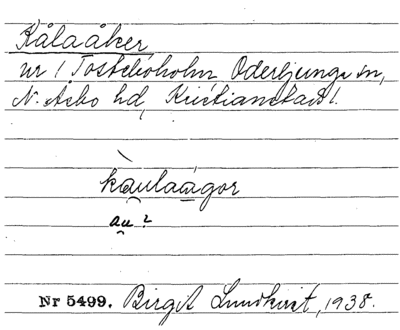 Kålaåker
nr 1 Tosteboholm Oderljunga sn,
N. Åsbo hd, Kristianstads l.
kau̯laågor
au̯ ?
Nr 5499. Birgit Lundkvist, 1938.